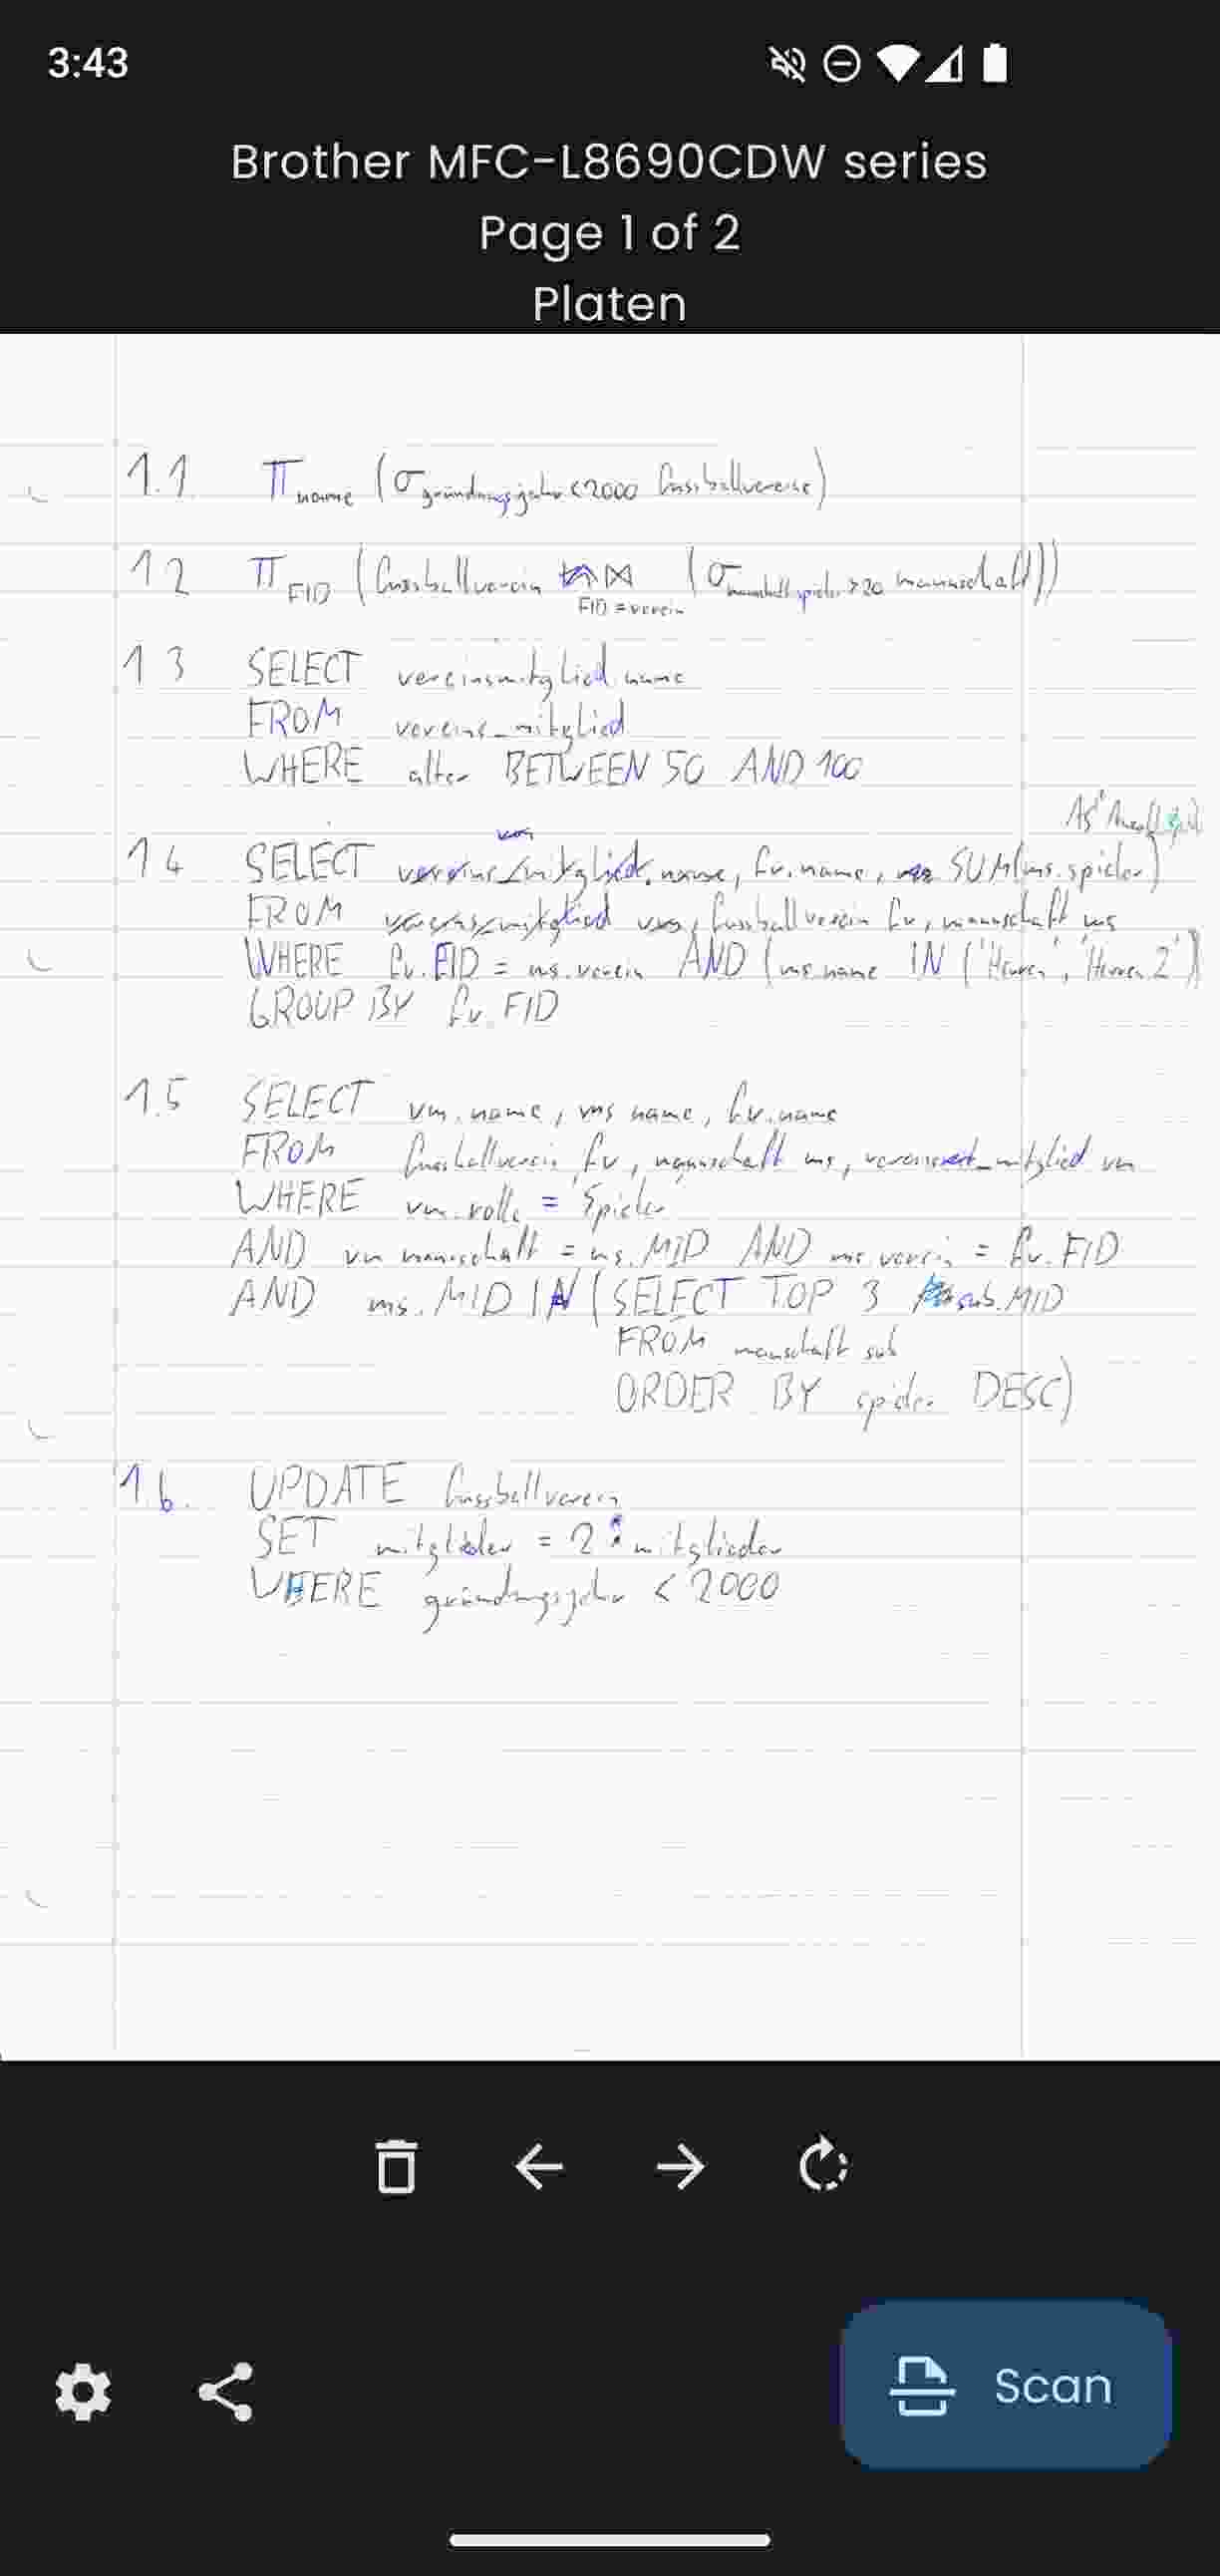 3:43
Brother MFC-L8690CDW series
Page 1 of 2
Platen
1.1 π name (σ gründungsjahr < 2000 fussballvereine)
1.2 π FID (fussballverein ⋈ FID = verein (σ spieler > 20 mannschaft))
1.3 SELECT vereinsmitglied.name
FROM vereins_mitglied
WHERE alter BETWEEN 50 AND 100
1.4 SELECT fv.name, SUM(ms.spieler)
FROM fussballverein fv, mannschaft ms
WHERE fv.FID = ms.verein AND (ms.name IN ('Herren', 'Herren 2'))
GROUP BY fv.FID
1.5 SELECT vm.name, ms.name, fv.name
FROM fussballverein fv, mannschaft ms, vereins_mitglied vm
WHERE vm.rolle = 'Spieler'
AND vm.mannschaft = ms.MID AND ms.verein = fv.FID
AND ms.MID IN (SELECT TOP 3 sub.MID
FROM manschaft sub
ORDER BY spieler DESC)
1.6. UPDATE fussballverein
SET mitglieder = 2 * mitglieder
WHERE gründungsjahr < 2000
Scan